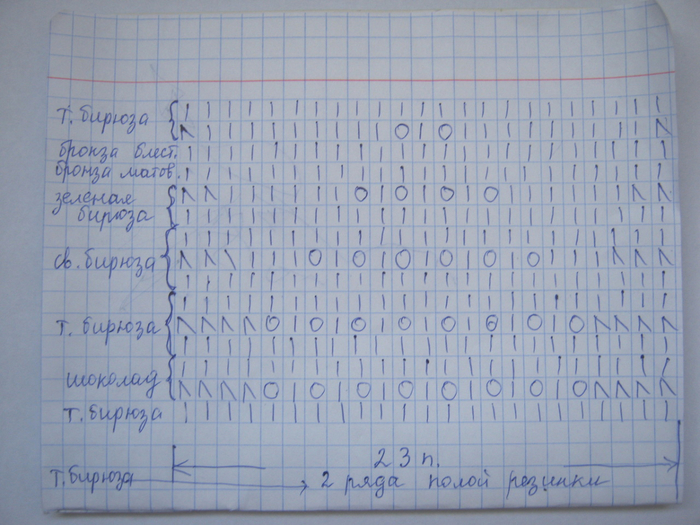 т. бирюза
бронза блест.
бронза матов.
зеленая
бирюза
св. бирюза
т. бирюза
шоколад
т. бирюза
23 п.
т. бирюза 2 ряда полой резинки